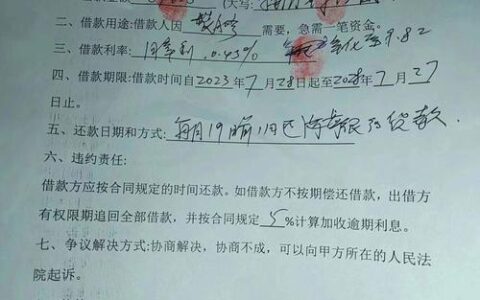 (大写:
二、借款用途:借款人因 需要,急需一笔资金。
三、借款利率: 月率利 0.45% 年化至9.82
四、借款期限:借款时间自2023年7月28日起至2028年7月27
日止。
五、还款日期和方式: 每月19日前归还 贷款.
六、违约责任:
借款方应按合同规定的时间还款。如借款方不按期偿还借款,出借方
有权限期追回全部借款,并按合同规定 5 %计算加收逾期利息。
七、争议解决方式:协商解决,协商不成,可以向甲方所在的人民法
院起诉。